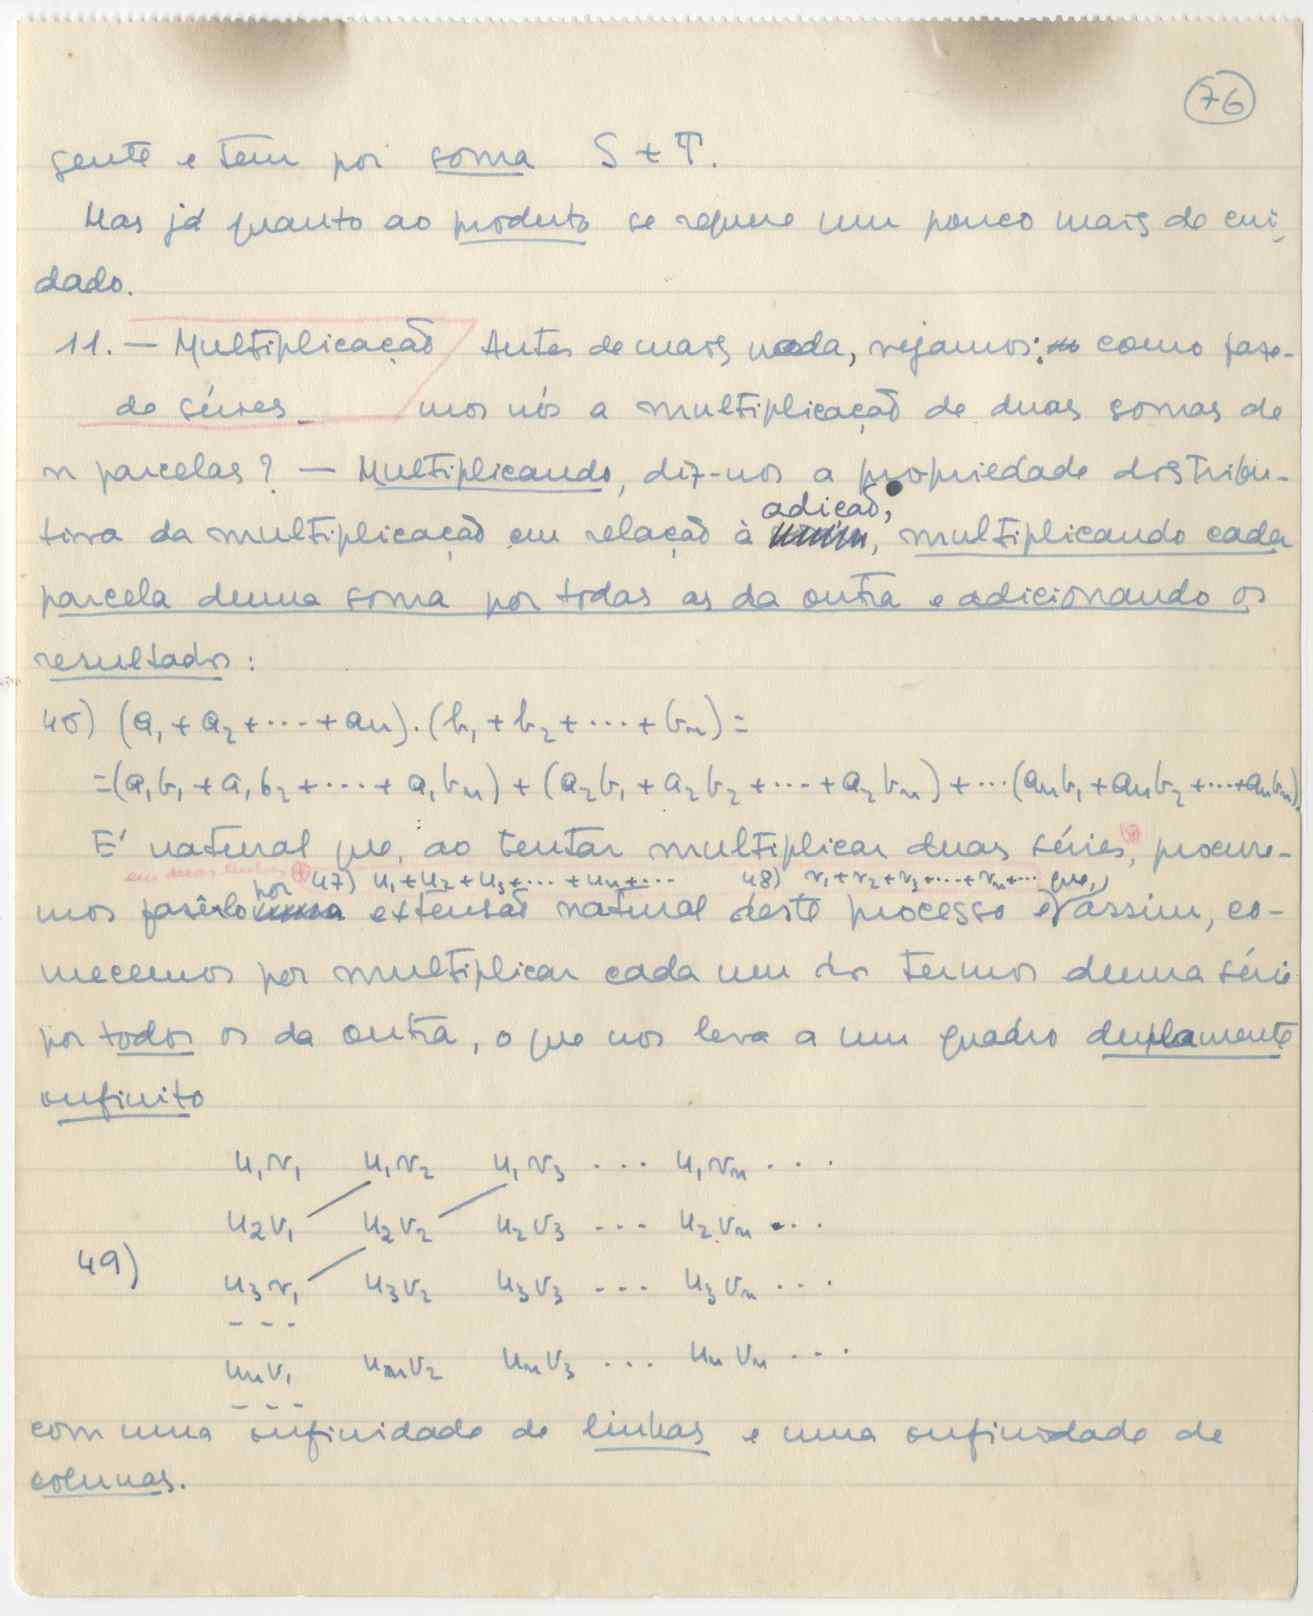 76
gente e tem por soma S + T.
Mas já quanto ao produto se requere um pouco mais de cui-
dado.
11. — Multiplicação Antes de mais nada, vejamos: como faze-
de séries mos nós a multiplicação de duas somas de
n parcelas? — Multiplicando, diz-nos a propriedade distribu-
tiva da multiplicação em relação à adição, multiplicando cada
parcela duma soma por todas as da outra e adicionando os
resultados:
46) (a₁ + a₂ + ··· + aₙ).(b₁ + b₂ + ··· + bₙ) =
=(a₁b₁ + a₁b₂ + ··· + a₁bₙ) + (a₂b₁ + a₂b₂ + ··· + a₂bₙ) + ···(aₙb₁ + aₙb₂ + ··· + aₙbₙ).
E' natural que, ao tentar multiplicar duas séries, procure-
em duas linhas 47) u₁ + u₂ + u₃ + ··· + uₙ + ··· 48) v₁ + v₂ + v₃ + ··· + vₙ + ··· que,
mos fazê-lo por extensão natural deste processo e assim, co-
mecemos por multiplicar cada um dos termos duma série
por todos os da outra, o que nos leva a um quadro duplamente
infinito
u₁v₁ u₁v₂ u₁v₃ ··· u₁vₙ ···
u₂v₁ u₂v₂ u₂v₃ ··· u₂vₙ ···
49)
u₃v₁ u₃v₂ u₃v₃ ··· u₃vₙ ···
- - -
uₙv₁ uₙv₂ uₙv₃ ··· uₙvₙ ···
- - -
com uma infinidade de linhas e uma infinidade de
colunas.